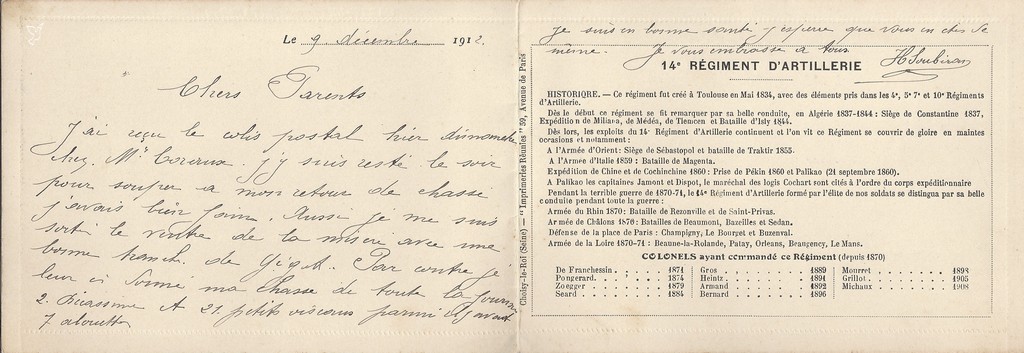 Le 9 décembre 1912.
Chers Parents
J'ai reçu le colis postal hier dimanche
chez Mr. j'y suis resté le soir
pour souper a mon retour de chasse
j'avais bien faim. Aussi je me suis
sorti le ventre de la misère avec une
bonne tranche de Gigot. Par contre je
leur ai donné ma chasse de toute la journée
2. Becassine et 21. petits oiseaux parmi il y avait
7. alouettes
je suis en bonne santé j'espère que vous en êtes de
même. Je vous embrasse a tous
HSoubiran
14e RÉGIMENT D'ARTILLERIE
HISTORIQRE. — Ce régiment fut créé à Toulouse en Mai 1834, avec des éléments pris dans les 4e, 5e 7e et 10e Régiments
d'Artillerie.
Dès le début ce régiment se fit remarquer par sa belle conduite, en Algérie 1837-1844 : Siège de Constantine 1837,
Expédition de Miliana, de Médéa, de Tlencen et Bataille d'Isly 1844.
Dès lors, les exploits du 14e Régiment d'Artillerie continuent et l'on vit ce Régiment se couvrir de gloire en maintes
occasions et notamment :
A l'Armée d'Orient : Siège de Sébastopol et bataille de Traktir 1855.
A l'Armée d'Italie 1859 : Bataille de Magenta.
Expédition de Chine et de Cochinchine 1860 : Prise de Pékin 1860 et Palikao (21 septembre 1860).
A Palikao les capitaines Jamont et Dispot, le maréchal des logis Cochart sont cités à l'ordre du corps expéditionnaire
Pendant la terrible guerre de 1870-71, le 14e Régiment d'Artillerie formé par l'élite de nos soldats se distingua par sa belle
conduite pendant toute la guerre :
Armée du Rhin 1870 : Bataille de Rezonville et de Saint-Privas.
Armée de Châlons 1870 : Batailles de Beaumont, Bazeilles et Sedan.
Défense de la place de Paris : Champigny, Le Bourget et Buzenval.
Armée de la Loire 1870-71 : Beaune-la-Rolande, Patay, Orleans, Beaugency, Le Mans.
COLONELS ayant commandé ce Régiment (depuis 1870)
De Franchessin . . 1871 Gros . . . . . . 1889 Mourret . . . . . 1898
Pongerard . . . . . 1874 Heintz . . . . . 1891 Grillot . . . . . . 1905
Zoegger . . . . . . 1879 Armand . . . . . 1892 Michaux . . . . . 1908
Seard . . . . . . . 1884 Bernard . . . . . 1896
Choisy-le-Roi (Seine) — "Imprimeries Réunies" 59, Avenue de Paris